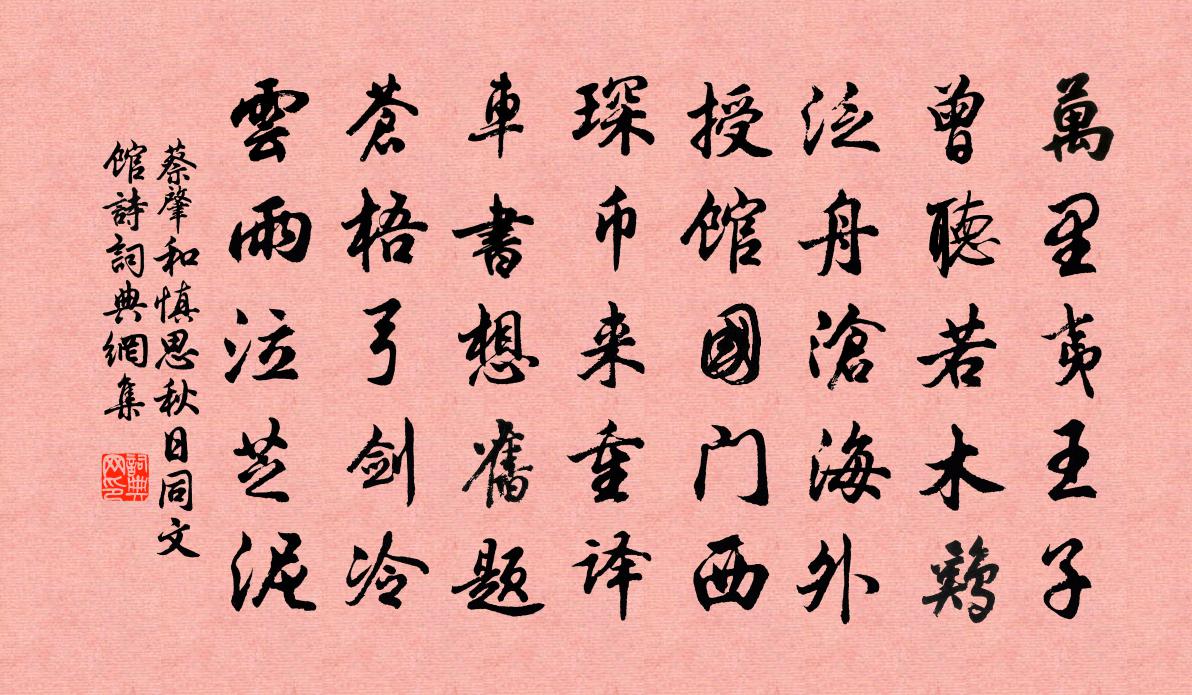 萬里夷王子
曾聽若木鷄
泛舟滄海外
授馆國门西
琛币来重译
車書想舊题
蒼梧弓剑冷
雲雨泣芝泥
蔡肇和慎思秋日同文
馆詩詞典網集
詞典
网印